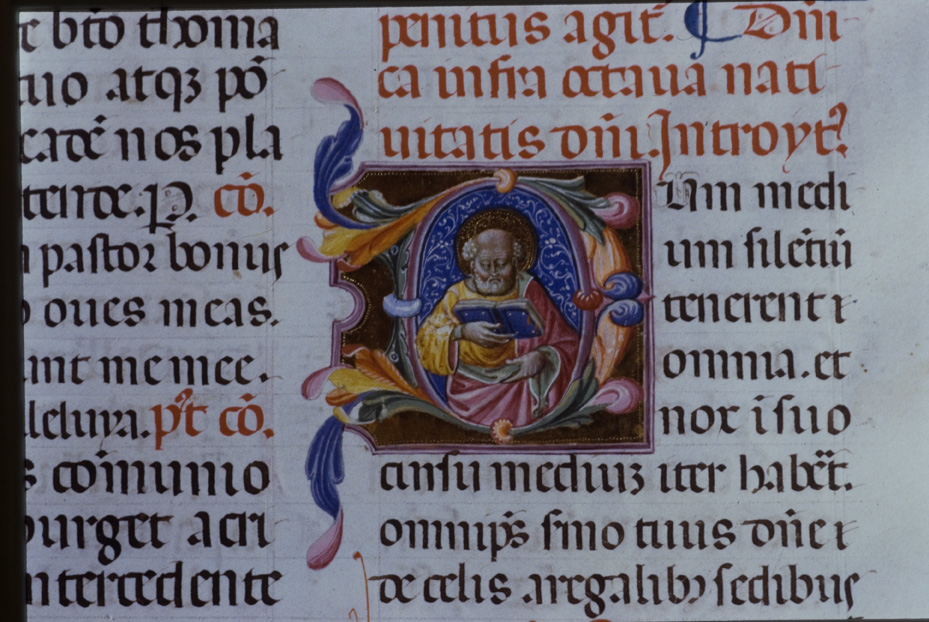 e bt̄o thoma
tuo atqꝫ pō
cadē nos pla
tende. P. cō.
pastor bonus
oues meas.
unt me mee.
lleluya. p̄t cō.
s cōmunio
purget a cri
intercedente
penitus agit̄. ¶ Dn̄i
ca infra octaua nati
uitatis dn̄i. Introyt᷒
Um medi
um silētiū
tenerent ⁊
omnia. et
nox ī suo
cursu mediuꝫ iter hab̄et.
omnip̄s sermo tuus dn̄e ⁊
de celis a regalibꝫ sedibus